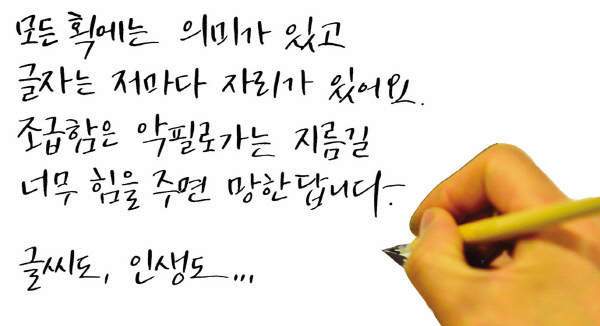 모든 획에는 의미가 있고
글자는 저마다 자리가 있어요.
조급함은 악필로가는 지름길
너무 힘을 주면 망한답니다.
글씨도, 인생도...